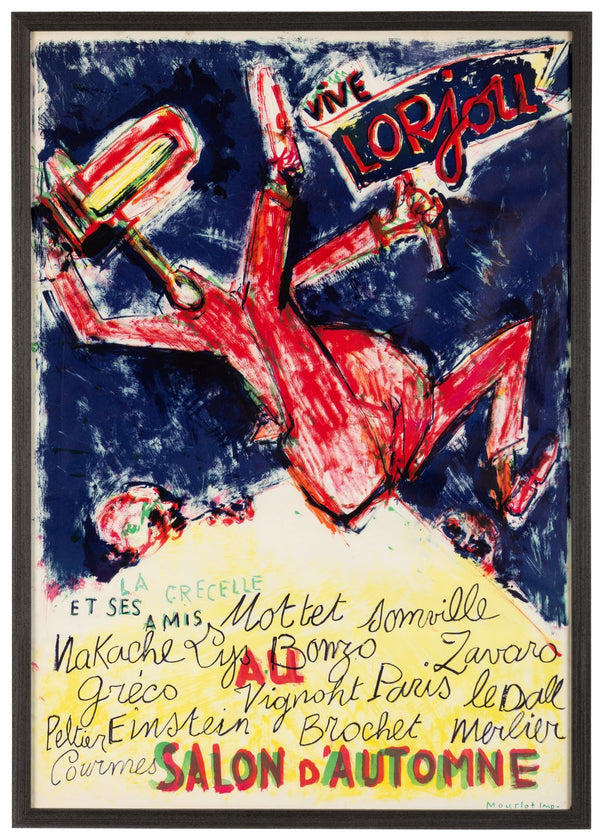 VIVE
LORjou
LA CRECELLE
ET SES AMIS
Mottet Somville
Nakache Lys Bonzo Zavaro
AU
Gréco Vignoht Paris le Dall
Peltier Einstein Brochet Merlier
Courmes SALON D'AUTOMNE
Mourlot Imp.